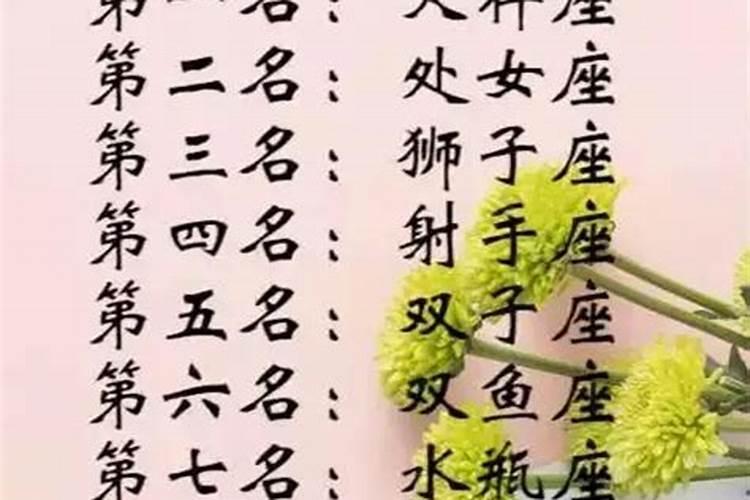 第一名：天秤座
第二名：处女座
第三名：狮子座
第四名：射手座
第五名：双子座
第六名：双鱼座
第七名：水瓶座